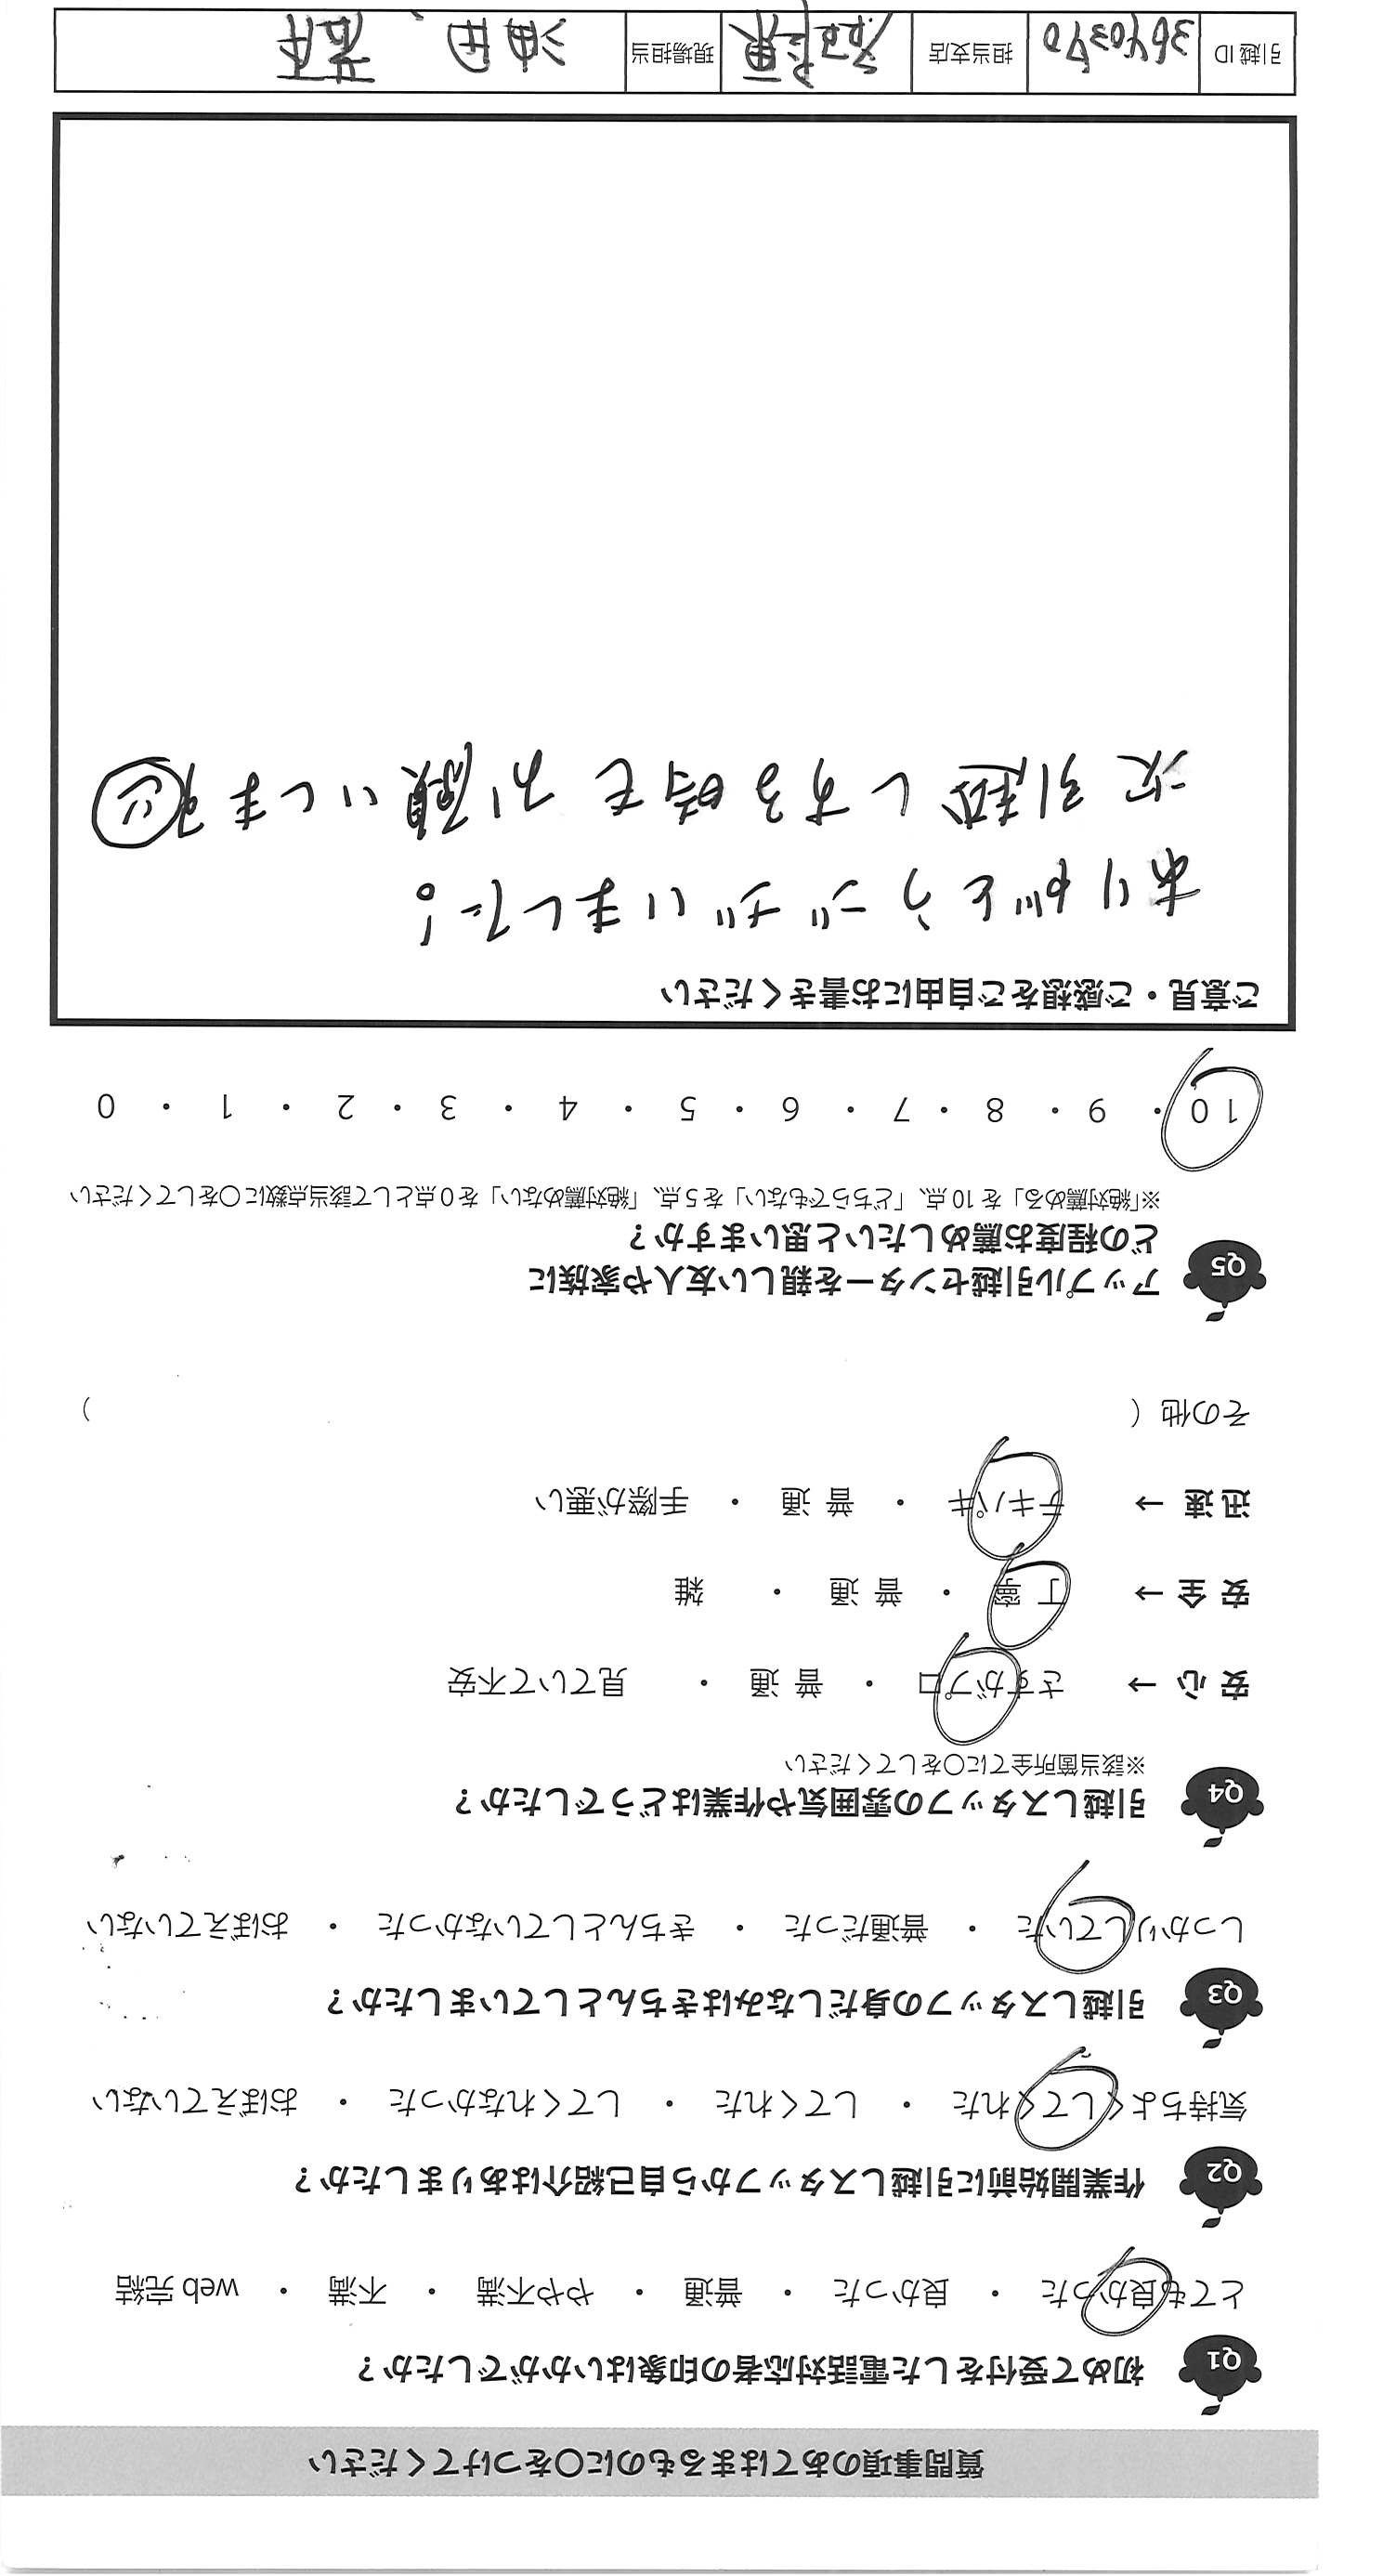 質問事項のあてはまるものに〇をつけてください
Q1 初めて受付をした電話対応者の印象はいかがでしたか？
とても良かった ・ 良かった ・ 普通 ・ やや不満 ・ 不満 ・ web 完結
Q2 作業開始前に引越しスタッフから自己紹介はありましたか？
気持ちよくしてくれた ・ してくれた ・ してくれなかった ・ おぼえていない
Q3 引越しスタッフの身だしなみはきちんとしていましたか？
しっかりしていた ・ 普通だった ・ きちんとしていなかった ・ おぼえていない
Q4 引越しスタッフの雰囲気や作業はどうでしたか？
※該当箇所全てに〇をしてください
安 心 → さすがプロ ・ 普 通 ・ 見ていて不安
安 全 → 丁 寧 ・ 普 通 ・ 雑
迅 速 → テキパキ ・ 普 通 ・ 手際が悪い
その他（ ）
Q5 アップル引越センターを親しい友人や家族に
どの程度お薦めしたいと思いますか？
※「絶対薦める」を 10 点、「どちらでもない」を 5 点、「絶対薦めない」を 0 点として該当点数に〇をしてください
10 ・ 9 ・ 8 ・ 7 ・ 6 ・ 5 ・ 4 ・ 3 ・ 2 ・ 1 ・ 0
ご意見・ご感想をご自由にお書きください
ありがとうございました！
次引越しする時もお願いします
引越 ID 3640370 担当支店 現場担当 油田